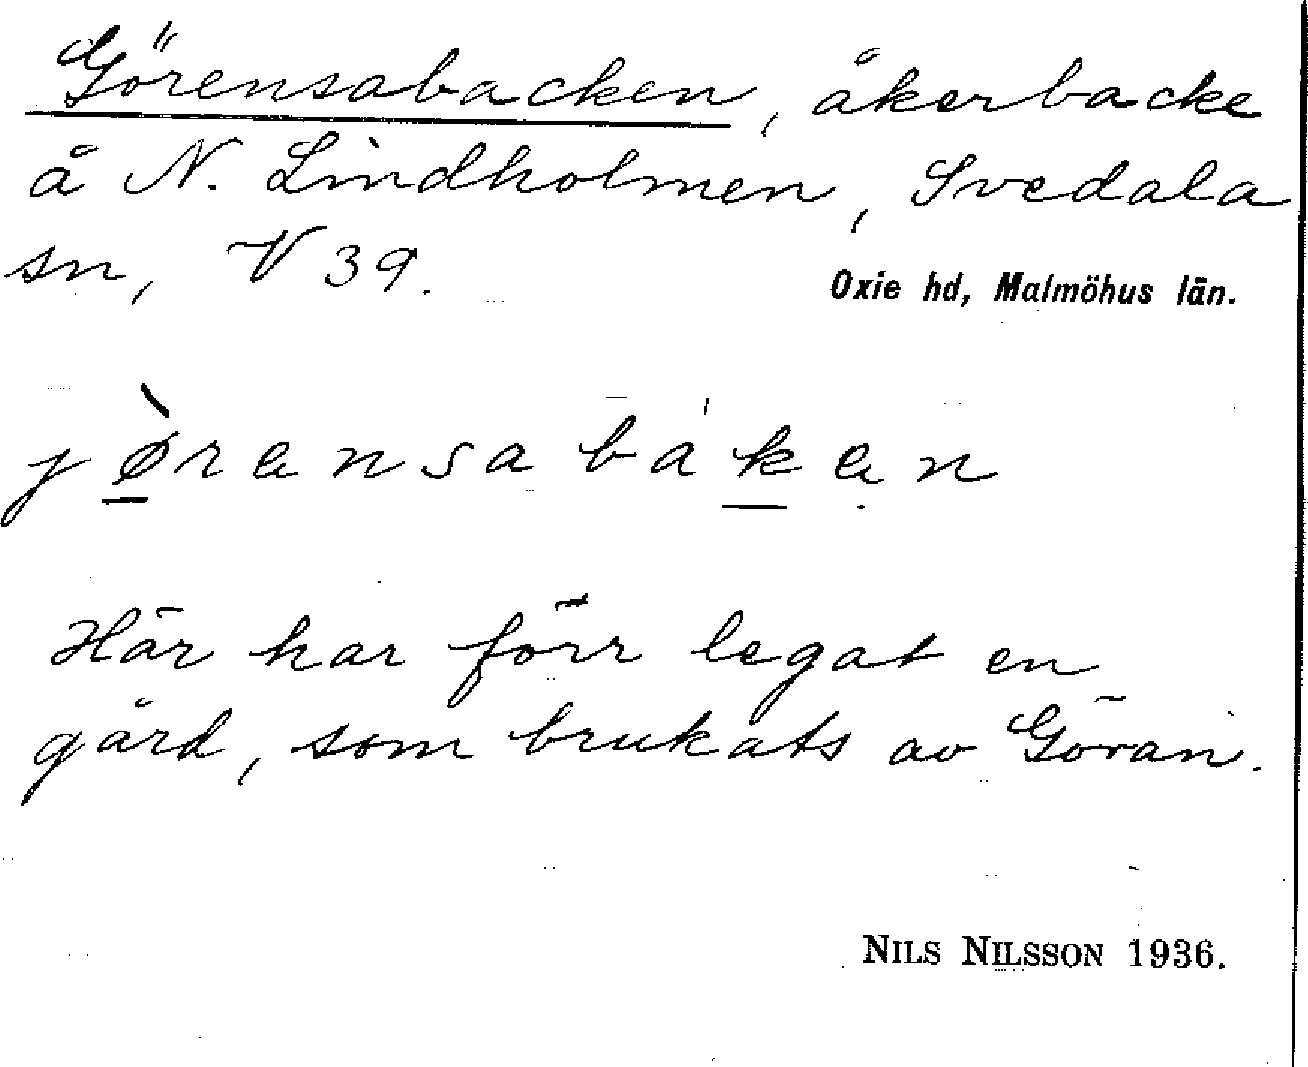 Görensabacken, åkerbacke
å N. Lindholmen, Svedala
sn, V 39.
Oxie hd, Malmöhus län.
jø̠̀rensabáken
Här har förr legat en
gård, som brukats av Göran.
NILS NILSSON 1936.